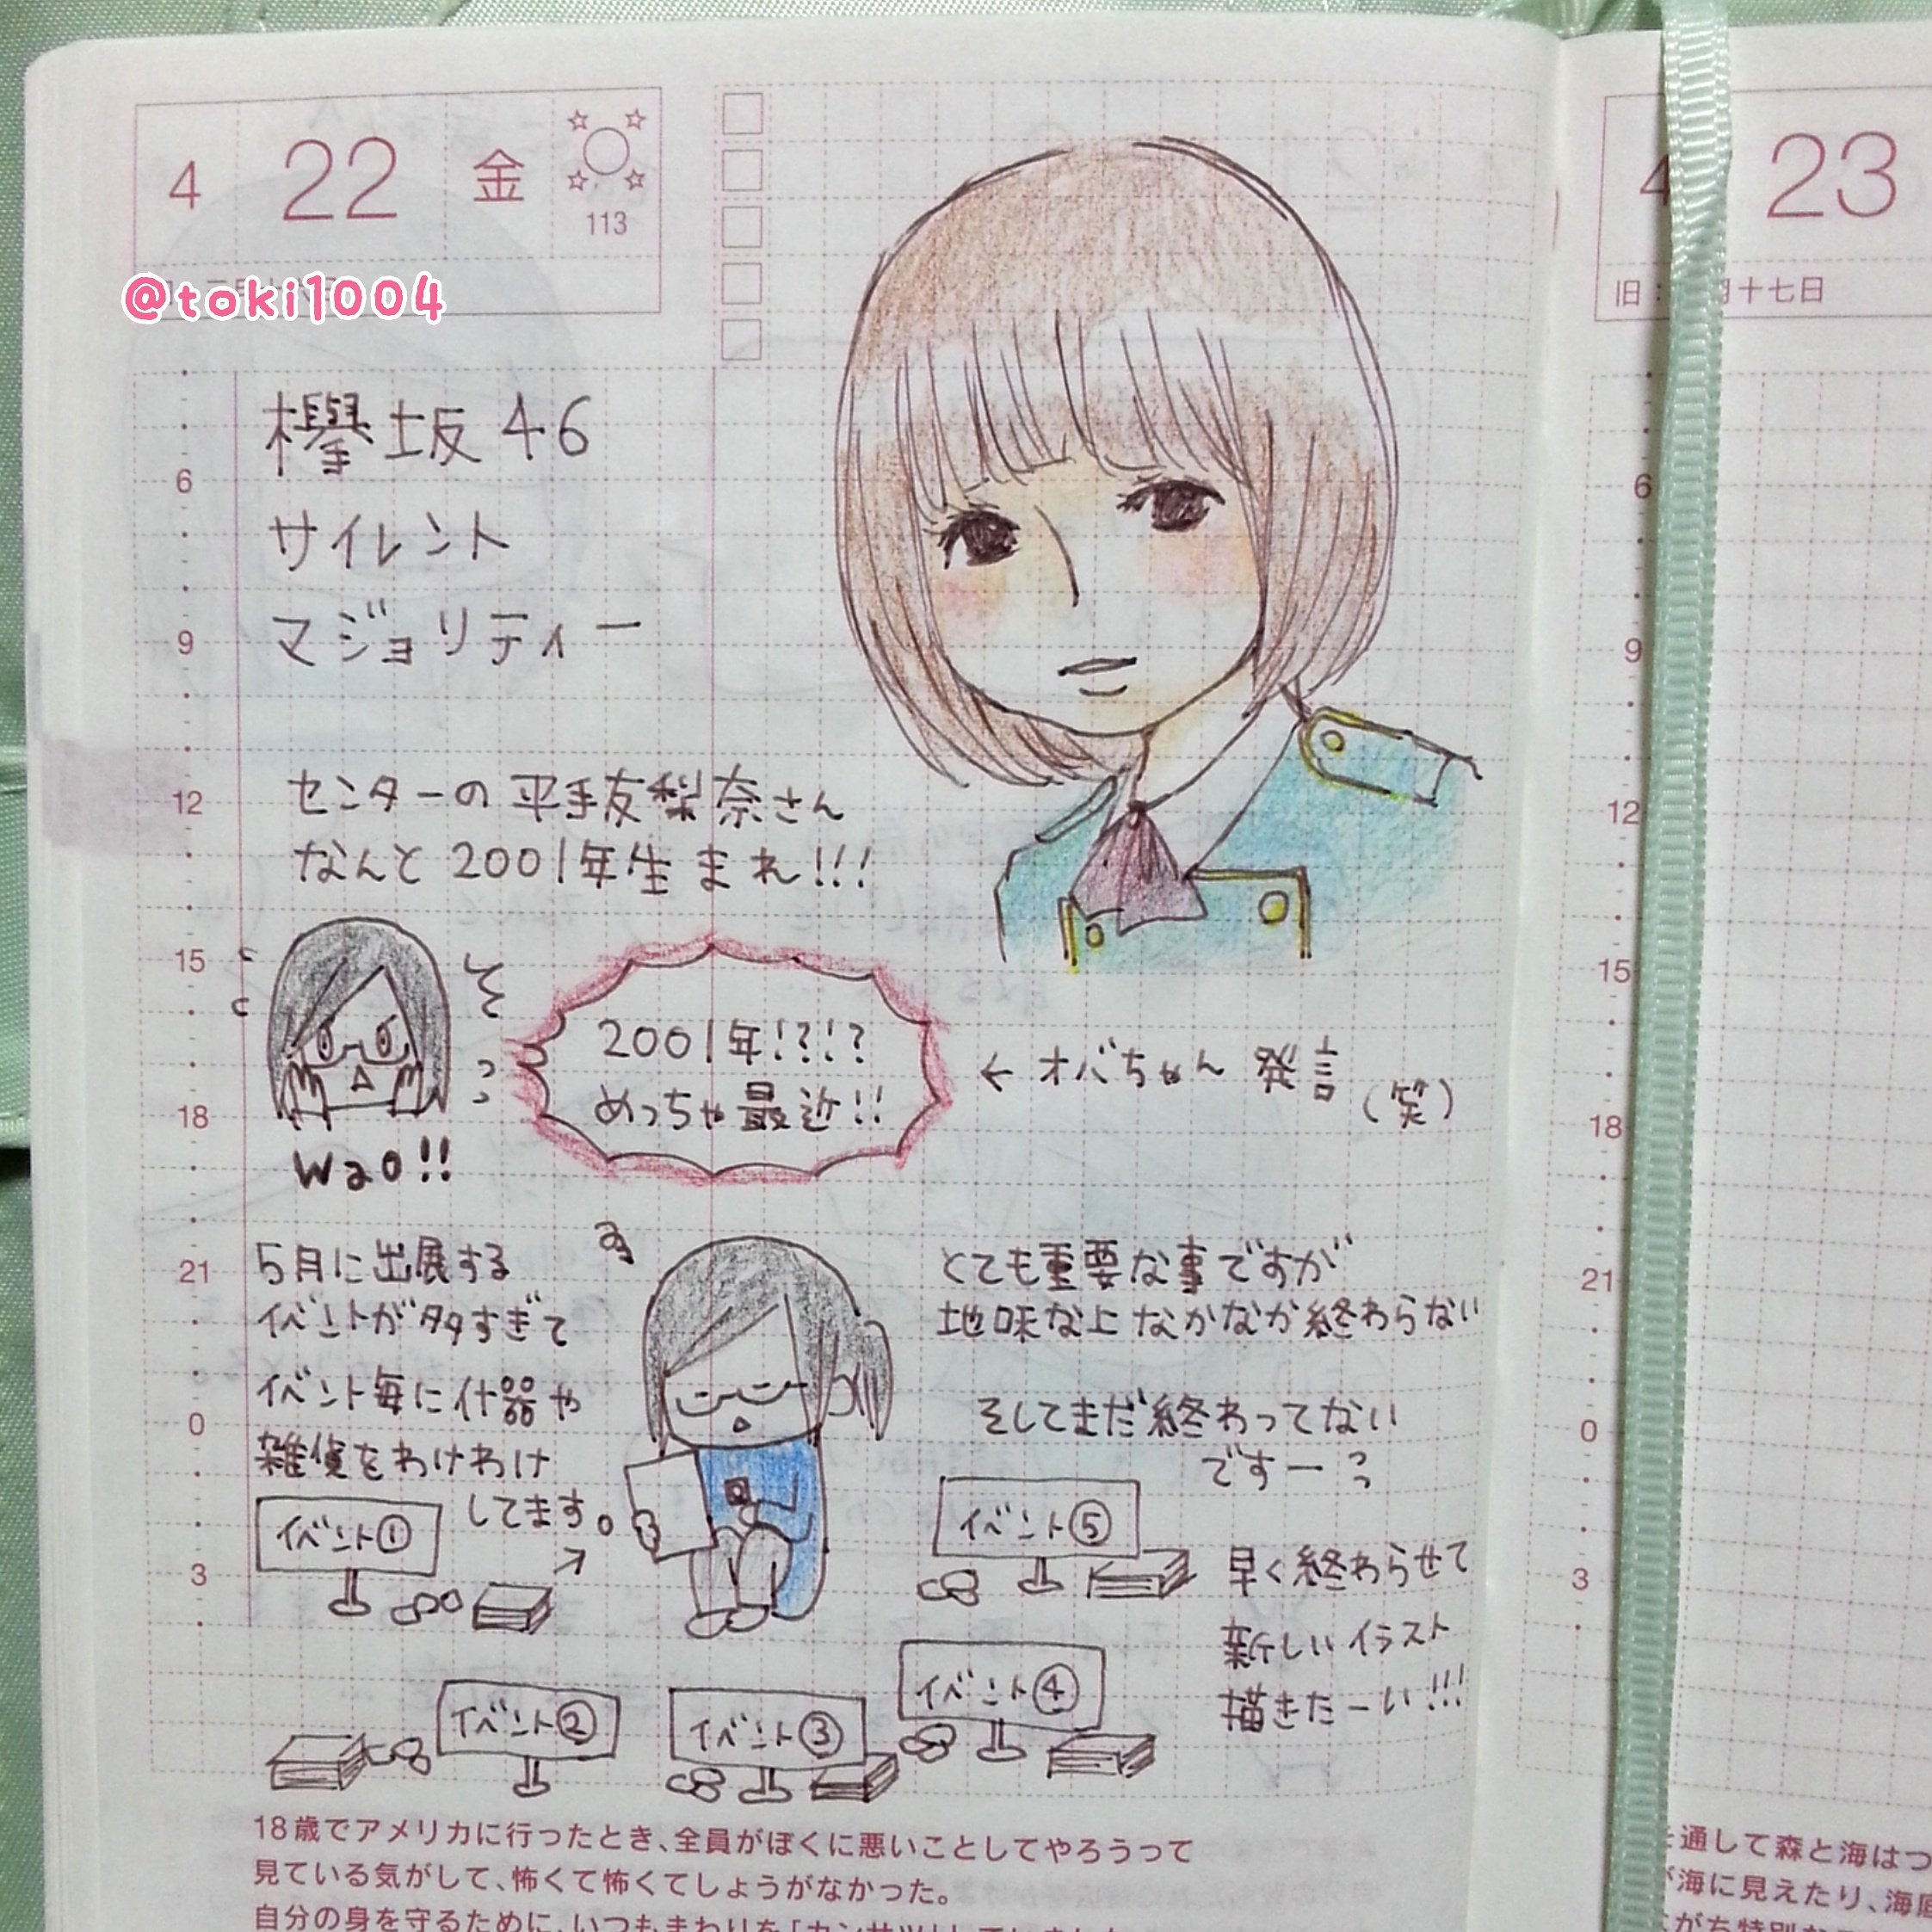 4 22 金
113
@toki1004
欅坂46
サイレント
マジョリティー
センターの平手友梨奈さん
なんと2001年生まれ!!!
2001年!?!?
めっちゃ最近!!
← オバちゃん発言(笑)
Wao!!
5月に出展する
イベントが多すぎて
イベント毎に什器や
雑貨をわけわけ
してます。
とても重要な事ですが
地味な上なかなか終わらない
そしてまだ終わってない
ですー
イベント①
イベント②
イベント③
イベント④
イベント⑤
早く終わらせて
新しいイラスト
描きたーい!!!
6
9
12
15
18
21
0
3
18歳でアメリカに行ったとき、全員がぼくに悪いことしてやろうって
見ている気がして、怖くて怖くてしょうがなかった。
自分の身を守るために、いつもまわりを「カンサツ」していました
4 23
旧: 月十七日
6
9
12
15
18
21
0
3
通して森と海はつ
海に見えたり、海底
がち特別な